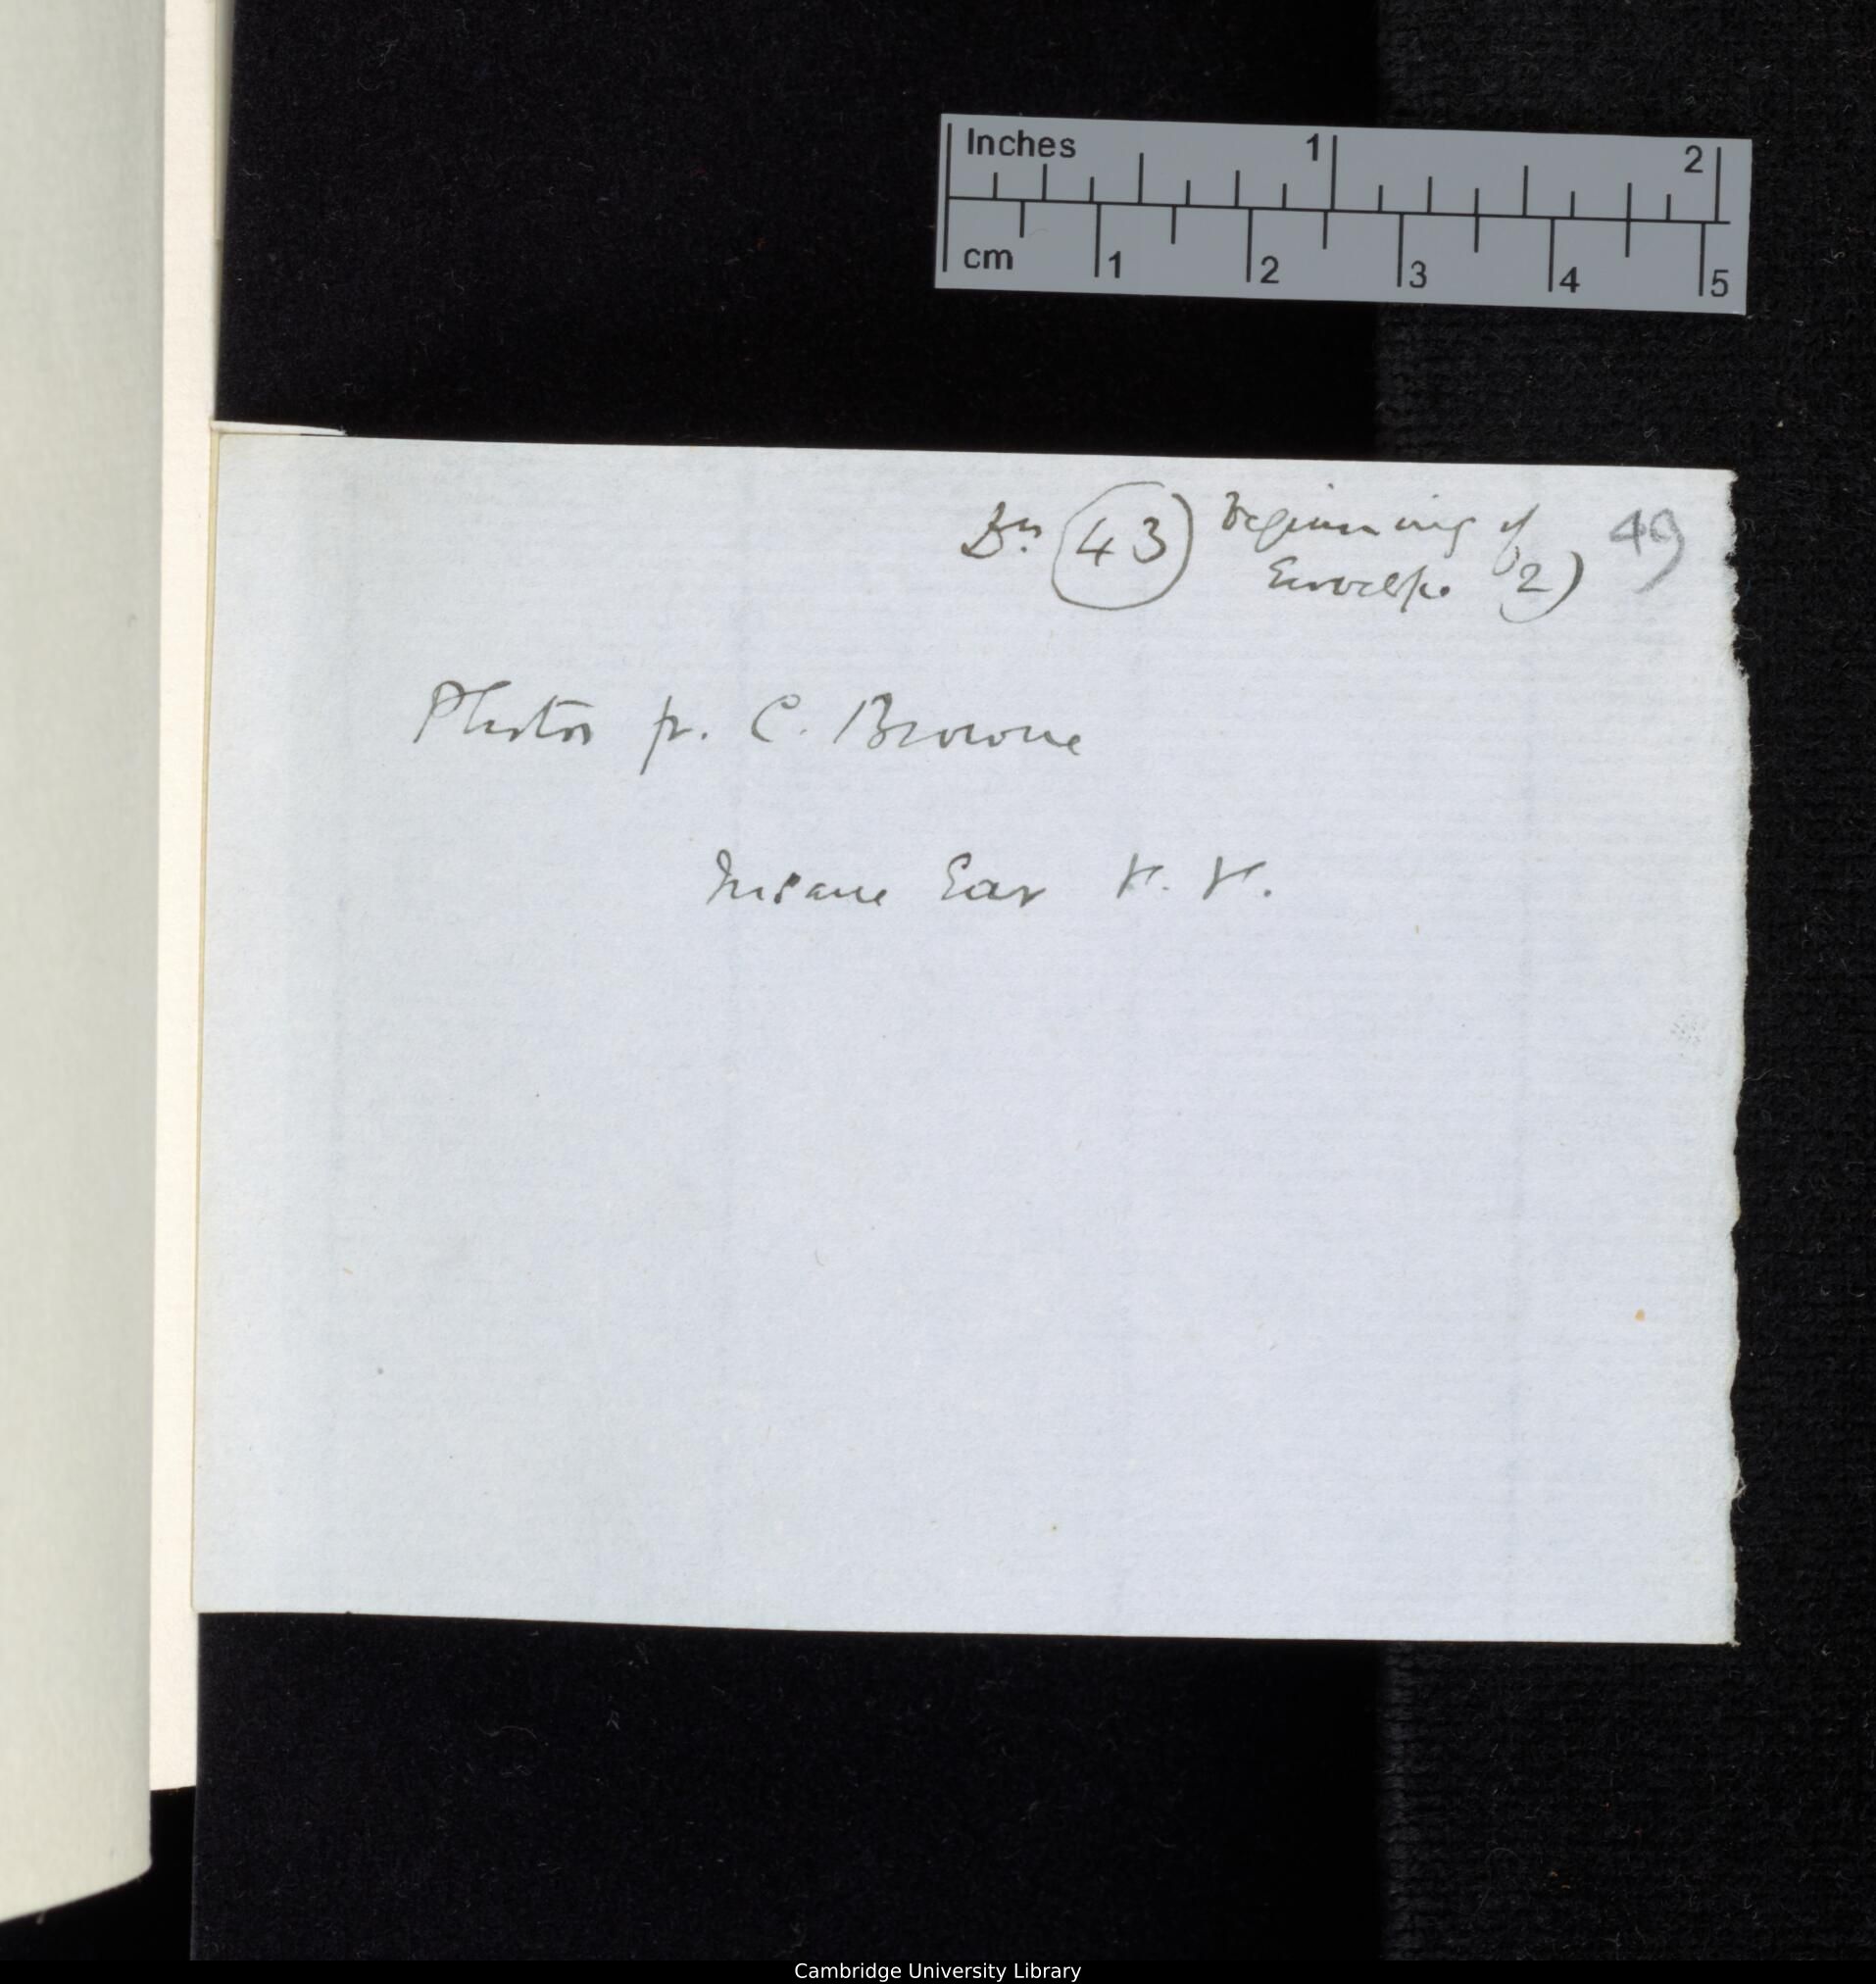 Inches 1 2
cm 1 2 3 4 5
(43) Beginning of 49
2)
Photos fr. C. Browne
Insane Ear
Cambridge University Library